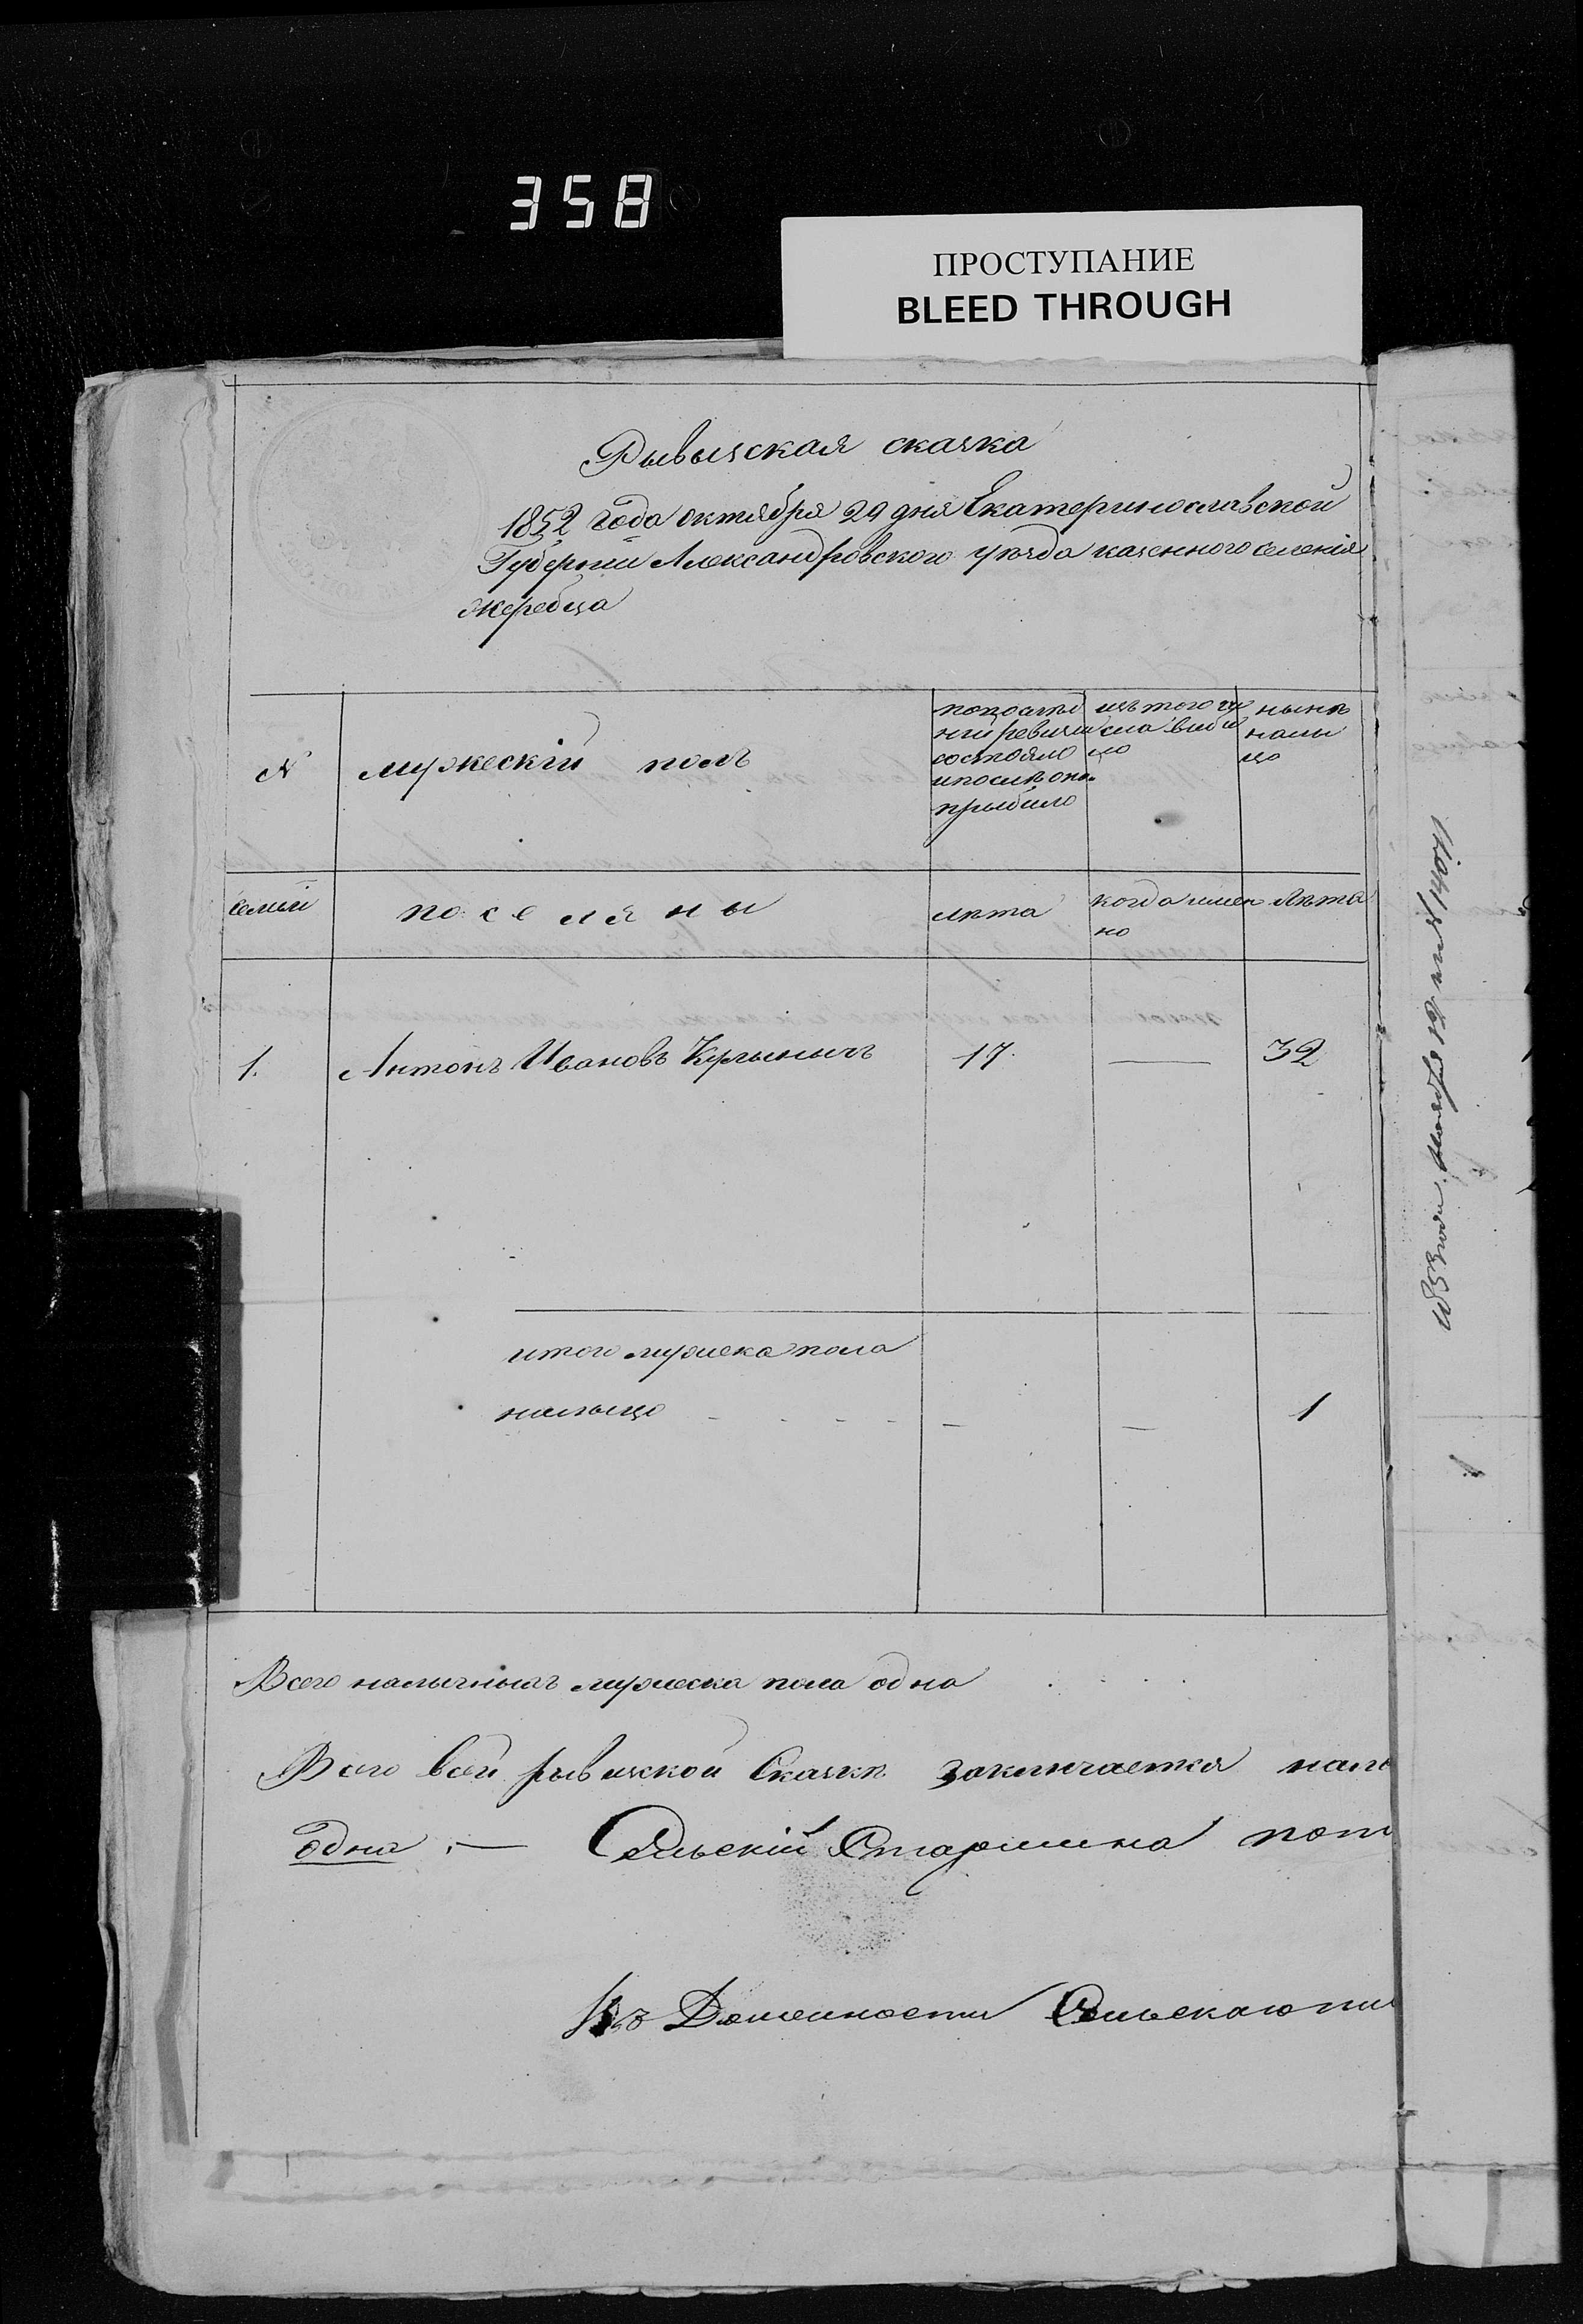 358
ПРОСТУПАНИЕ
BLEED THROUGH
Рывызская сказка
1852 года октября 29 дня Екатеринославской
Губернии Александровского уѣзда казенного селенія
жеребца
N мужескій полъ
попослѣд
ній ревизіи
состояло
ипослѣ оно
прыбыло
изъ того чи
сла выбы
ло
нынѣ
налы
цо
семьи поселяны лѣта когда имен
но лѣта
1. Антонъ Ивановъ 17. — 32
итого мужеска пола
налыцо - - - - - — — 1
Всего налычныхъ мужеска пола одна
Всего всей рывизской Сказки заключается нал
одна .— Сельскій Старшина
Должности Сельскаго пи